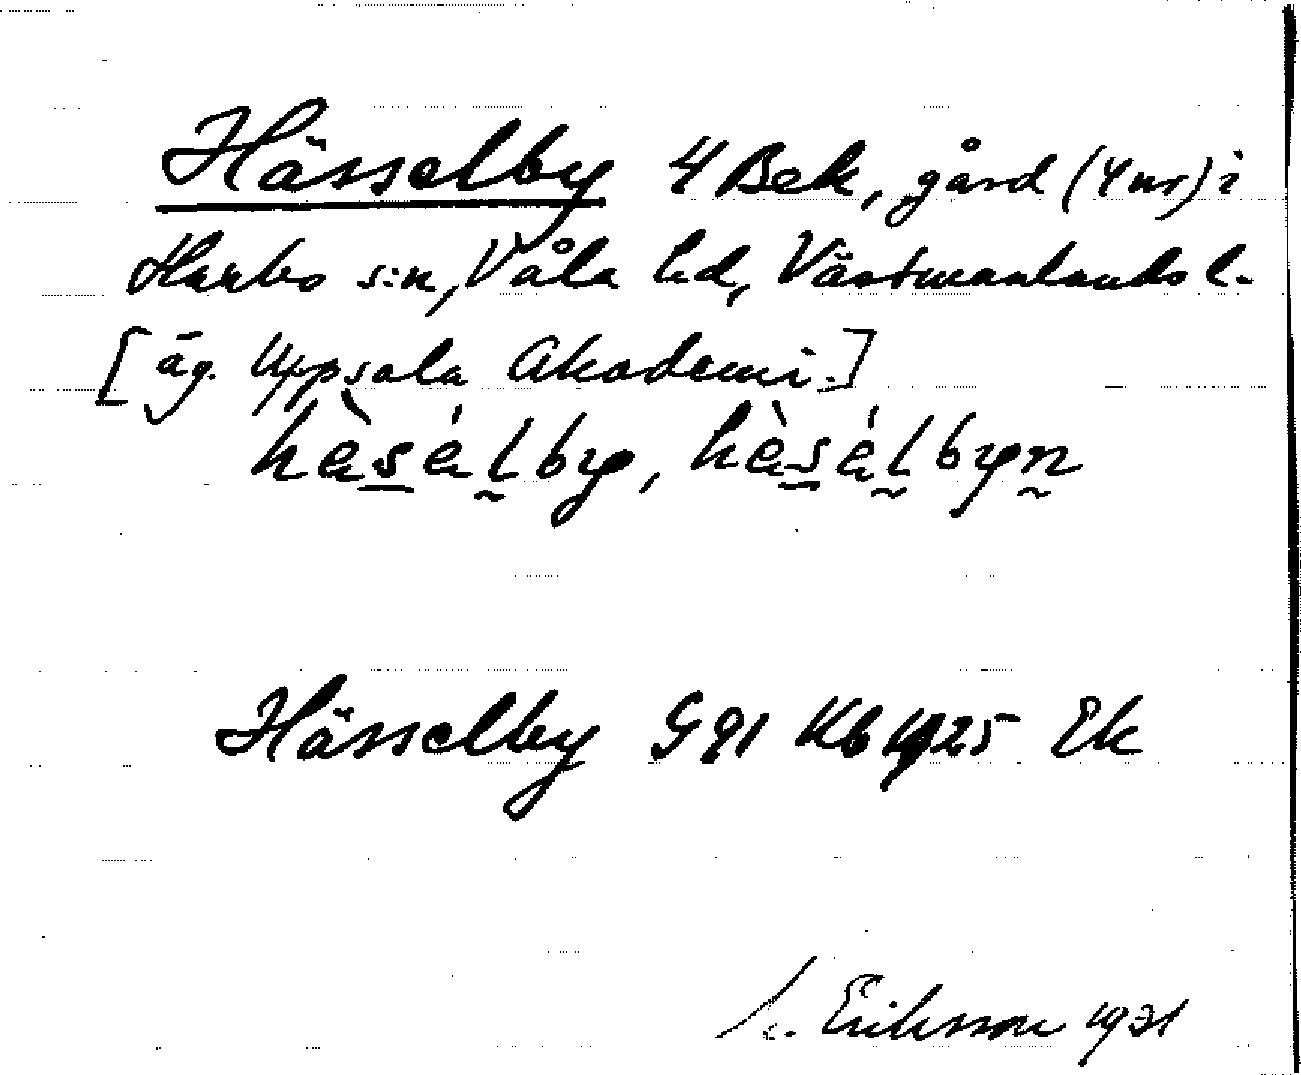 Hässelby 4 Bek, gård (4 nr) i
Harbo s:n, Våla hd, Västmanlands l.
[äg. Uppsala Akademi.]
hèsélby, hèsélbyn
Hässelby G 91 Kb 1925 Ek
Eriksson 1931